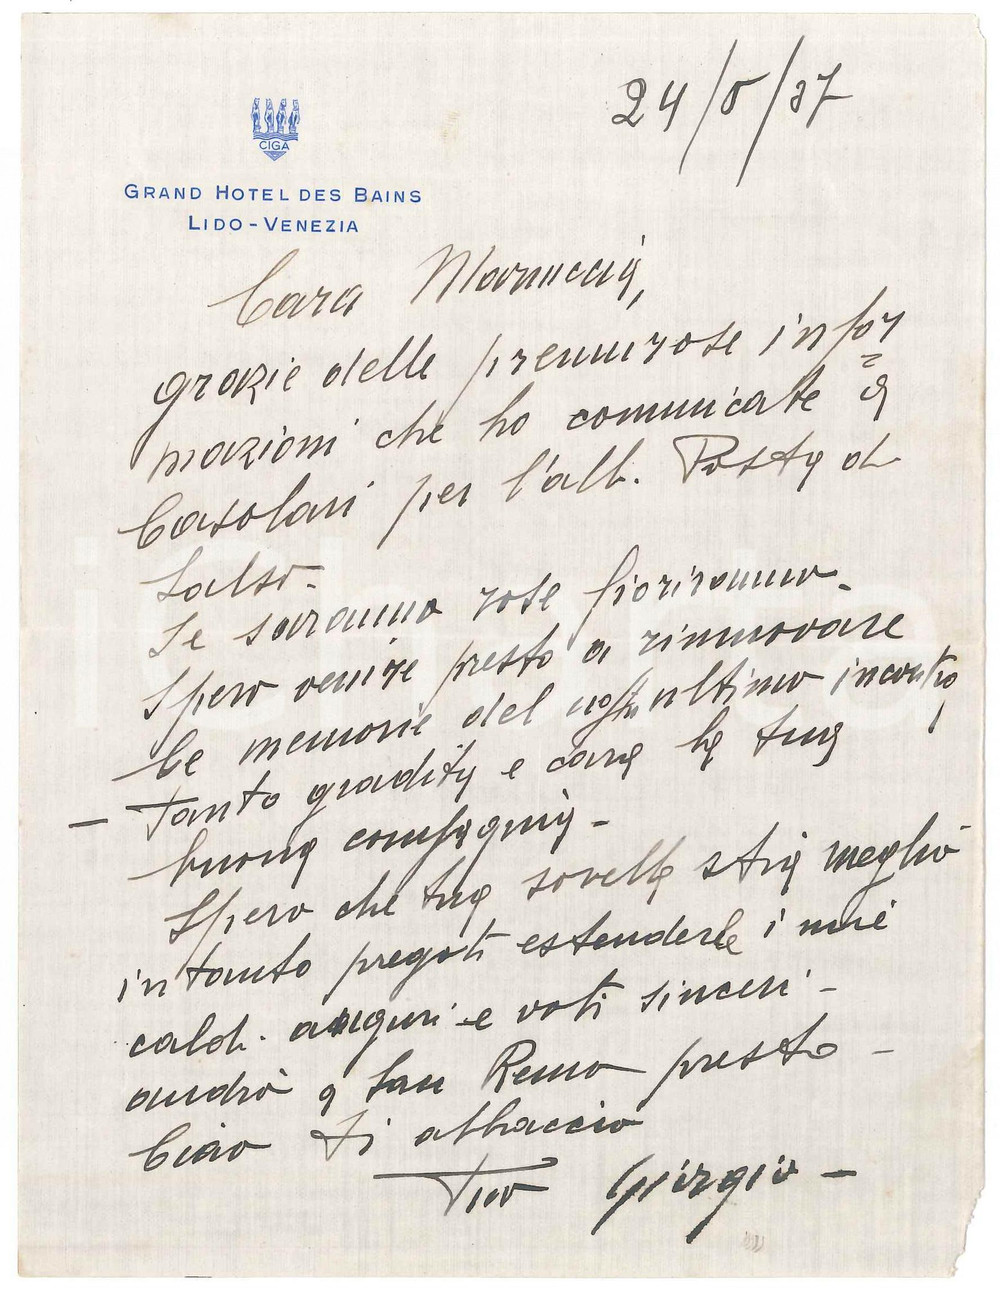 24/8/37
CIGA
GRAND HOTEL DES BAINS
LIDO - VENEZIA
Cara Mariuccia,
grazie delle premurose infor
=
mazioni che ho comunicate a
Casolari per l'alb. Posta di
Salso.
Se saranno rose fioriranno.
Spero venire presto a rinnovare
le memorie del nostro ultimo incontro,
- Tanto gradita e cara la tua
buona compagnia -
Spero che tua sorella stia meglio
intanto pregoti estenderle i miei
caldi auguri e voti sinceri -
andrò a San Remo presto -
Ciao ti abbraccio
Tuo Giorgio -